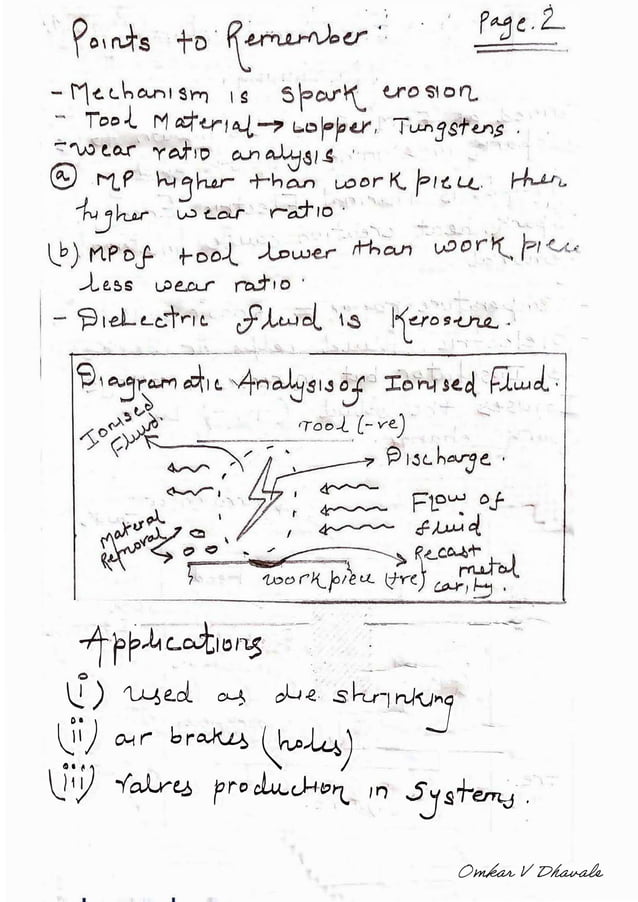 Page. 2
Points to Remember:
- Mechanism is spark erosion
- Tool Material → Copper, Tungstens.
- wear ratio analysis.
(a) MP higher than work piece then
higher wear ratio.
(b) MP of tool lower than work piece
less wear ratio.
- Dielectric fluid is Kerosene.
Diagramatic Analysis of Ionised Fluid.
Ionised
Fluid.
Tool (-ve)
Discharge.
Flow of
fluid
Material
Removal
Recast
metal
cavity.
work piece (+ve)
Applications
(i) used as die shrinking
(ii) air brakes (holes)
(iii) valves production in systems.
Omkar V Dhavale